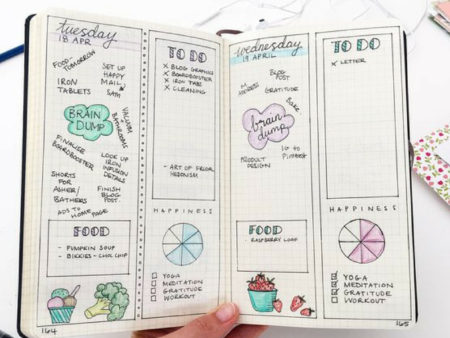 tuesday
18 APR
FOOD - TOMORROW
SET UP
HAPPY
MAIL
IRON
TABLETS
SATH
BRAIN
DUMP
VACUUM
+
BATHROOMS
FINALISE
BOARDBOOSTER
LOOK UP
IRON
INFUSION
DETAILS
SHORTS
FOR
ASHER/
BATHERS
FINISH
BLOG
POST
ADS TO HOME PAGE
FOOD
- PUMPKIN SOUP
- BIKKIES - CHOC CHIP
164
TO DO
X BLOG GRAPHIC
X BOARDBOOSTER
X IRON TABS
X CLEANING
- ART OF FRUGAL
HEDONISM
HAPPINESS
YOGA
MEDITATION
GRATITUDE
WORKOUT
wednesday
19 APRIL
BLOG
POST
ADDRESS
GRATITUDE
brain
dump
PRODUCT
DESIGN
FOOD
- RASPBERRY LOAF
TO DO
X LETTER
HAPPINESS
YOGA
MEDITATION
GRATITUDE
WORKOUT
165